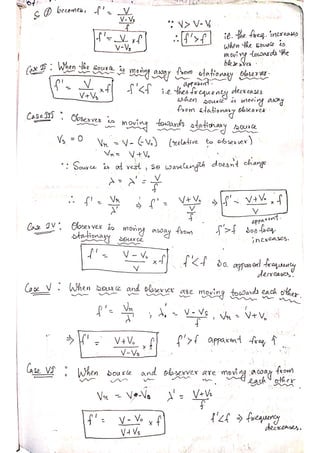 So ① becomes, f' = V / (V-Vs) × f ∵ V > V-Vs
f' = V / (V-Vs) × f ∴ f' > f i.e. the freq. increases
when the source is
moving towards the
observer.
Case II : When the source is moving away from stationary observer.
f' = V / (V+Vs) × f f' < f i.e. the apparent frequency decreases
when source is moving away
from stationary observer
Case III : Observer is moving towards stationary source
Vs = 0 Vn = V - (-Vo) (relative to observer)
Vn = V + Vo
∵ Source is at rest, so wavelength doesn't change
λ = λ' = V / f
∴ f' = Vn / λ' ⇒ f' = (V + Vo) / (V / f) ⇒ f' = (V + Vo) / V × f
Case IV : Observer is moving away from f' > f so apparent freq.
stationary source increases.
f' = (V - Vo) / V × f f' < f so apparent frequency
decreases
Case V : When source and observer are moving towards each other.
f' = Vn / λ' ; λ' = (V - Vs) / f , Vn = V + Vo
⇒ f' = (V + Vo) / (V - Vs) × f f' > f apparent freq ↑
Case VI : When source and observer are moving away from
each other
Vn = V - Vo λ' = (V + Vs) / f
f' = (V - Vo) / (V + Vs) × f f' < f ⇒ frequency
decreases.